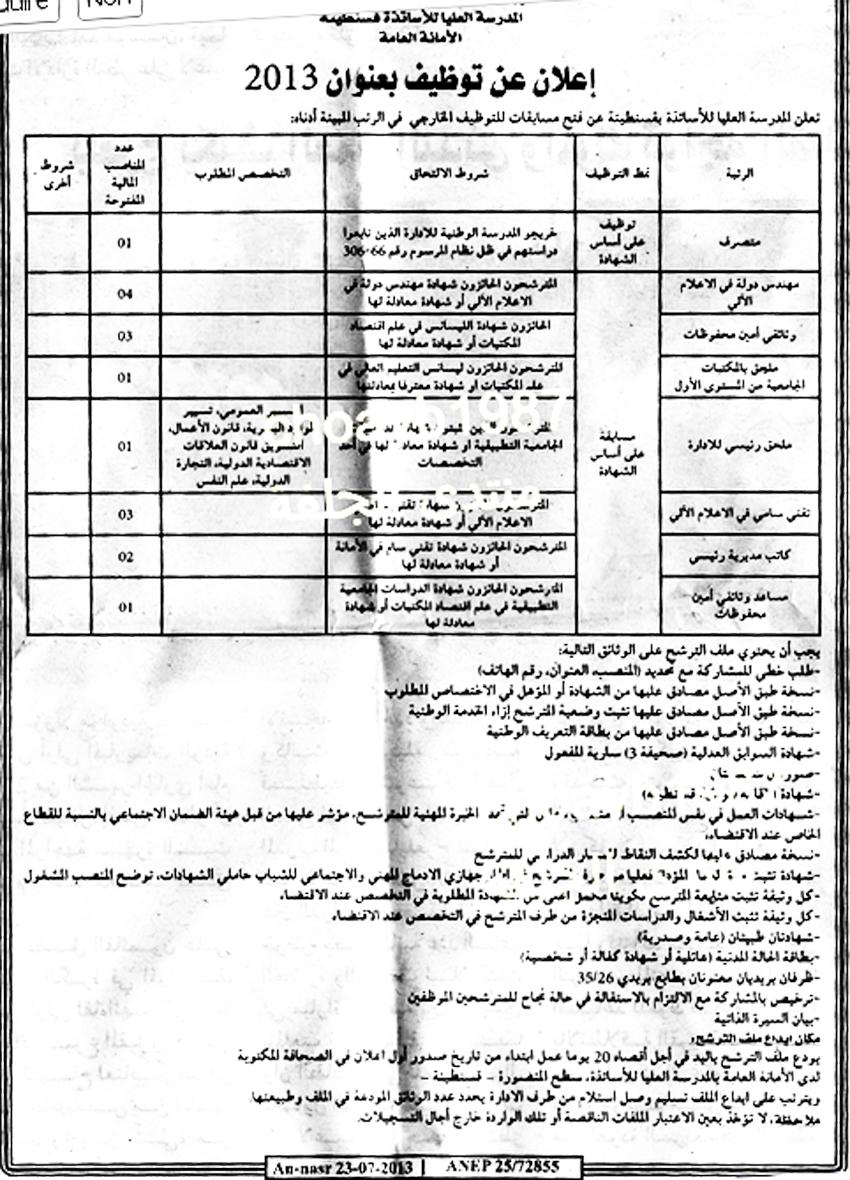 uaire
Non
المدرسة العليا للأساتذة قسنطينة
الأمانة العامة
إعلان عن توظيف بعنوان 2013
تعلن المدرسة العليا للأساتذة بقسنطينة عن فتح مسابقات للتوظيف الخارجي في الرتب المبينة أدناه:
الرتبة
نمط التوظيف
شروط الالتحاق
التخصص المطلوب
عدد
المناصب
المالية
المفتوحة
شروط
أخرى
متصرف
توظيف
على أساس
الشهادة
خريجو المدرسة الوطنية للادارة الذين تابعوا
دراستهم في ظل نظام المرسوم رقم 66-306
01
مهندس دولة في الاعلام
الآلي
المترشحون الحائزون شهادة مهندس دولة في
الاعلام الآلي أو شهادة معادلة لها
04
وثائقي أمين محفوظات
الحائزون شهادة الليسانس في علم اقتصاد
المكتبات أو شهادة معادلة لها
03
ملحق بالمكتبات
الجامعية من المستوى الأول
المترشحون الحائزون ليسانس التعليم العالي في
علم المكتبات أو شهادة معترفا بمعادلتها
01
ملحق رئيسي للادارة
مسابقة
على أساس
الشهادة
الجامعية التطبيقية أو شهادة معادلة لها في أحد
التخصصات
التسيير العمومي، تسيير
الموارد البشرية، قانون الأعمال،
تسويق، قانون العلاقات
الاقتصادية الدولية، التجارة
الدولية، علم النفس
01
تقني سامي في الاعلام الآلي
الاعلام الآلي أو شهادة معادلة لها
03
كاتب مديرية رئيسي
المترشحون الحائزون شهادة تقني سام في الأمانة
أو شهادة معادلة لها
02
مساعد وثائقي أمين
محفوظات
المترشحون الحائزون شهادة الدراسات الجامعية
التطبيقية في علم اقتصاد المكتبات أو شهادة
معادلة لها
01
1987
منتدى الجلفة
يجب أن يحتوي ملف الترشح على الوثائق التالية:
-طلب خطي للمشاركة مع تحديد (المنصب، العنوان، رقم الهاتف)
-نسخة طبق الأصل مصادق عليها من الشهادة أو المؤهل في الاختصاص المطلوب
-نسخة طبق الأصل مصادق عليها تثبت وضعية المترشح إزاء الخدمة الوطنية
-نسخة طبق الأصل مصادق عليها من بطاقة التعريف الوطنية
-شهادة السوابق العدلية (صحيفة 3) سارية المفعول
-شهادة
-شهادات العمل في نفس المنصب الخبرة المهنية للمترشح، مؤشر عليها من قبل هيئة الضمان الاجتماعي بالنسبة للقطاع
الخاص عند الاقتضاء.
-نسخة مصادق عليها لكشف النقاط للمسار الدراسي للمترشح
-شهادة تثبت جهازي الادماج المهني والاجتماعي للشباب حاملي الشهادات، توضح المنصب المشغول
-كل وثيقة تثبت متابعة المترشح تكوينا من الشهادة المطلوبة في التخصص عند الاقتضاء
-كل وثيقة تثبت الأشغال والدراسات المنجزة من طرف المترشح في التخصص عند الاقتضاء
-شهادتان طبيتان (عامة وصدرية)
-بطاقة الحالة المدنية (عائلية أو شهادة كفالة أو شخصية)
-ظرفان بريديان معنونان بطابع بريدي 35/26
-ترخيص بالمشاركة مع الالتزام بالاستقالة في حالة نجاح للمترشحين الموظفين
-بيان السيرة الذاتية
مكان ايداع ملف الترشح:
يودع ملف الترشح باليد في أجل أقصاه 20 يوما عمل ابتداء من تاريخ صدور أول اعلان في الصحافة المكتوبة
لدى الأمانة العامة بالمدرسة العليا للأساتذة، سطح المنصورة - قسنطينة -
ويترتب على ايداع الملف تسليم وصل استلام من طرف الادارة يحدد عدد الوثائق المودعة في الملف وطبيعتها.
ملاحظة: لا تؤخذ بعين الاعتبار الملفات الناقصة أو تلك الواردة خارج أجال التسجيلات.
An-nasr 23-07-2013 | ANEP 25/72855